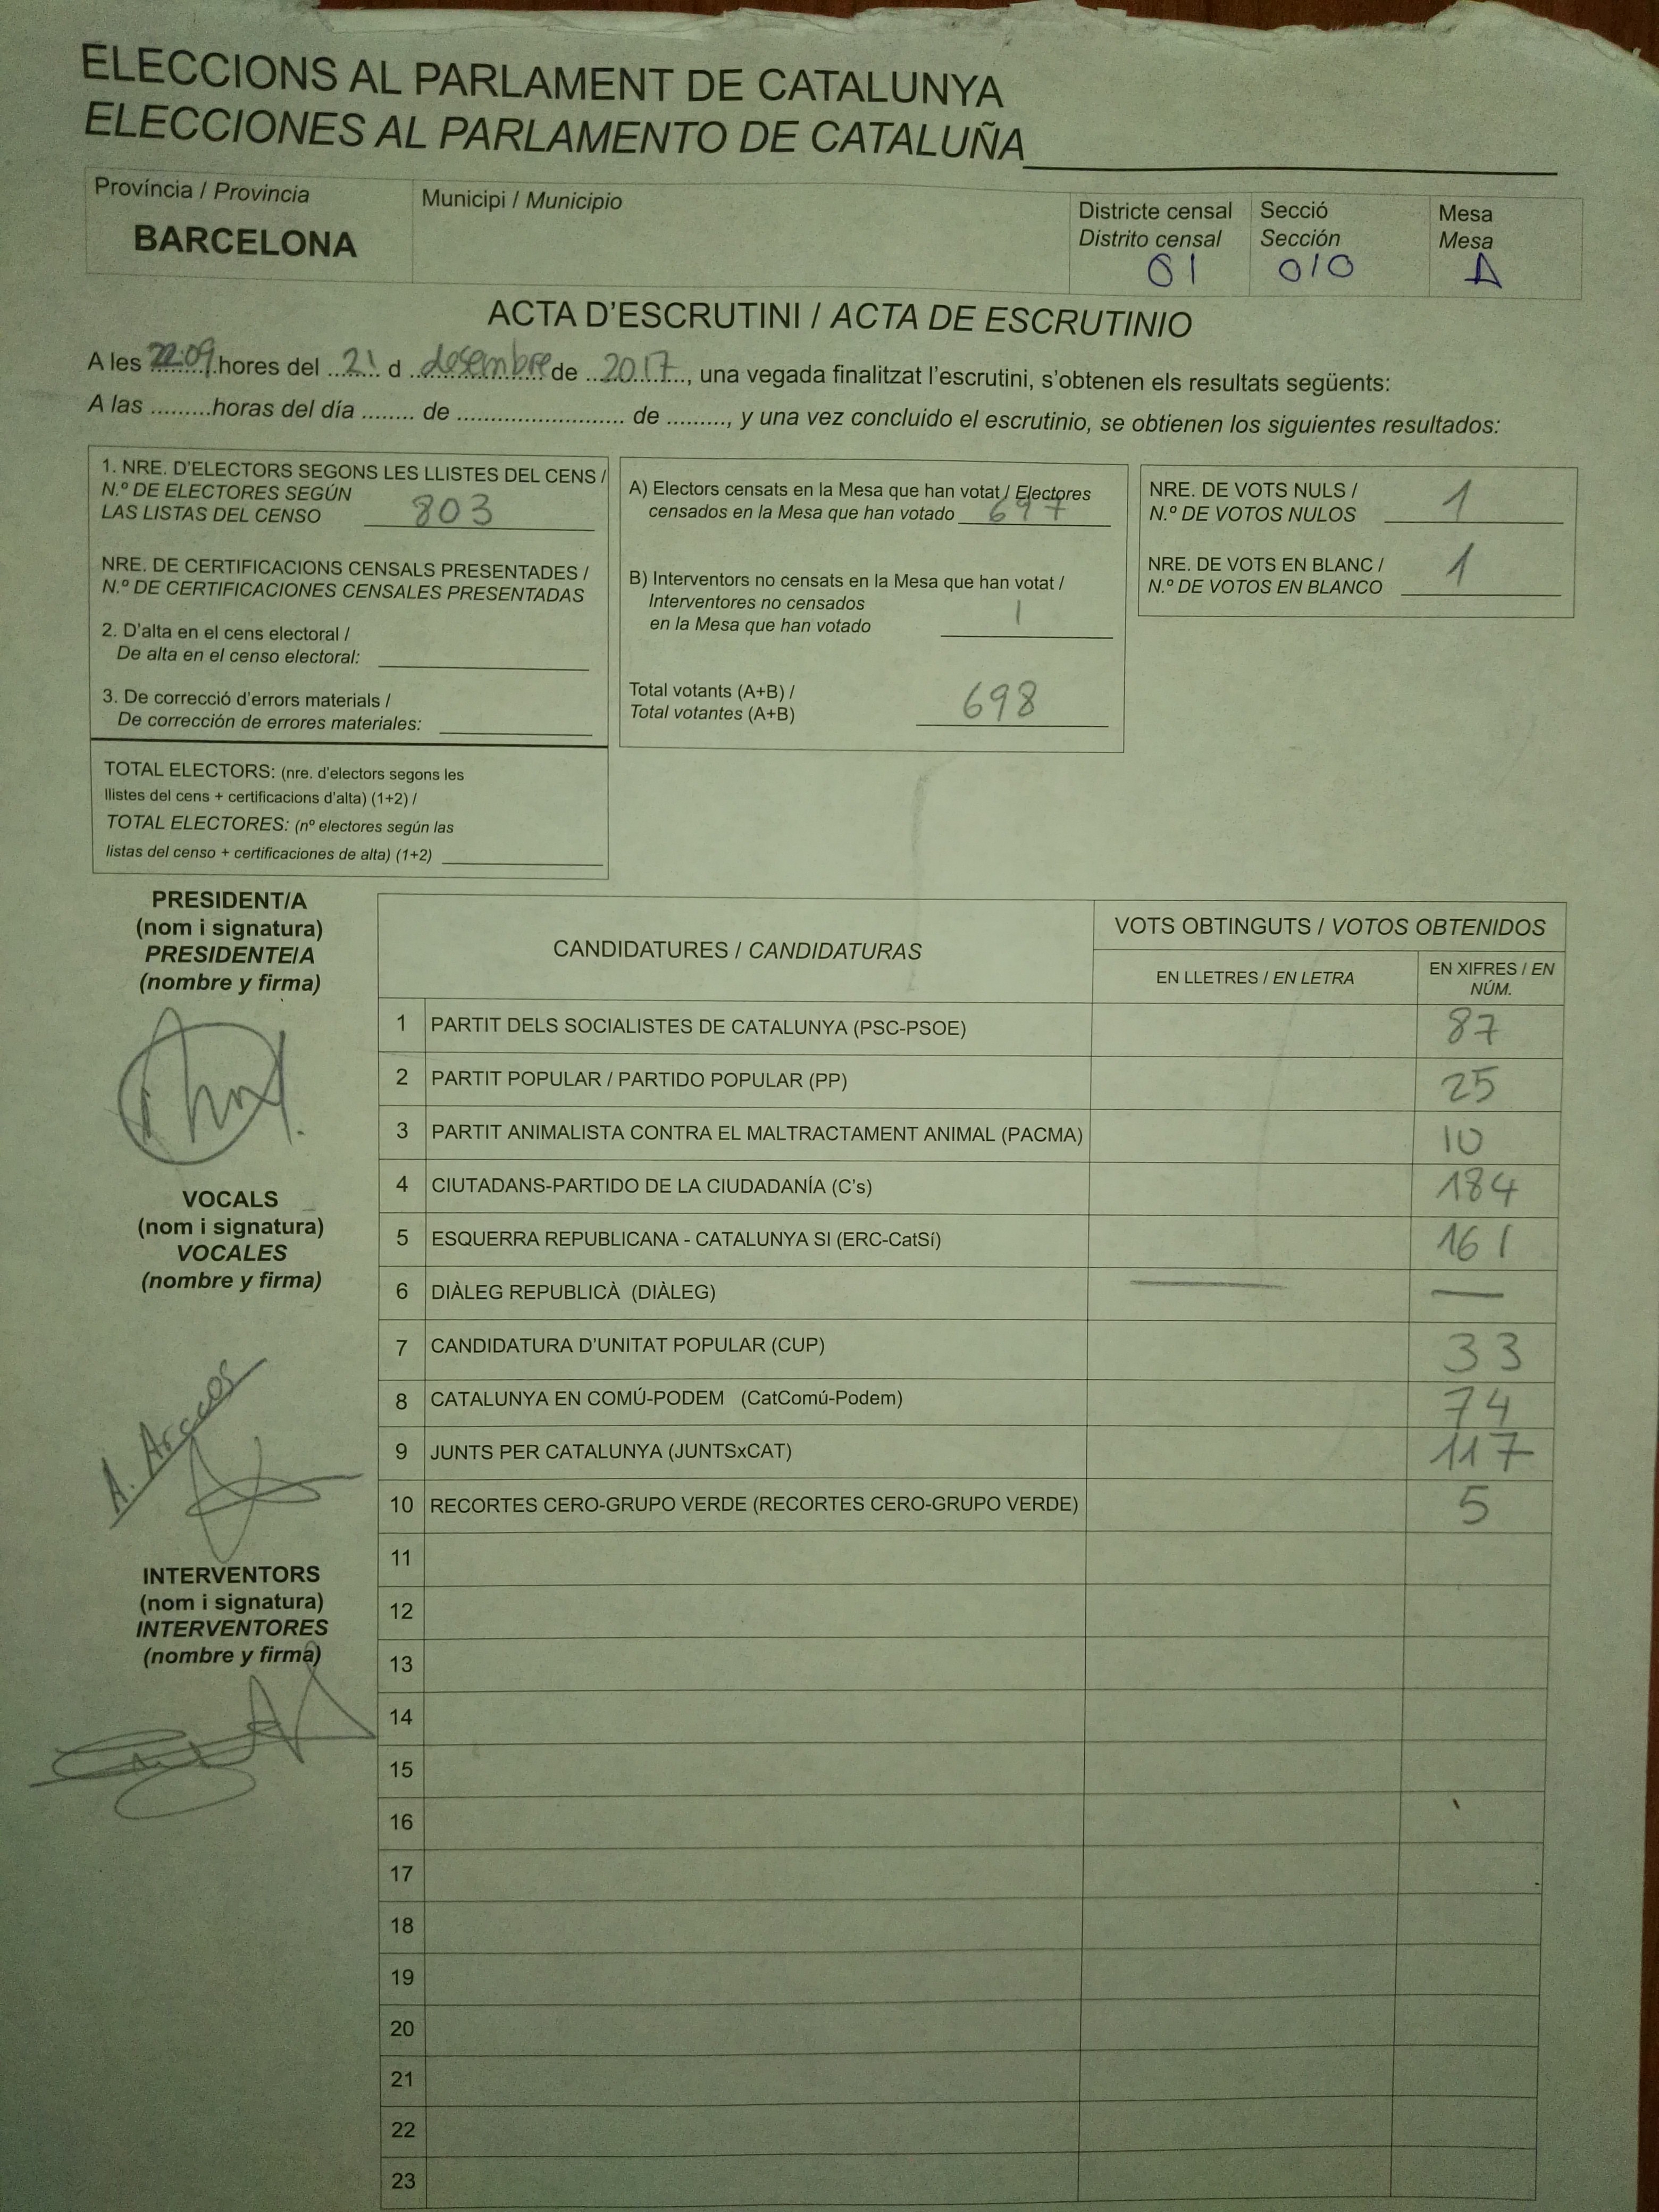 ELECCIONS AL PARLAMENT DE CATALUNYA
ELECCIONES AL PARLAMENTO DE CATALUÑA
Província / Provincia
BARCELONA
Municipi / Municipio
Districte censal
Distrito censal
01
Secció
Sección
010
Mesa
Mesa
A
ACTA D'ESCRUTINI / ACTA DE ESCRUTINIO
A les 22:09 hores del 21 d desembre de 2017, una vegada finalitzat l'escrutini, s'obtenen els resultats següents:
A las .........horas del día ........ de ......................... de ........., y una vez concluido el escrutinio, se obtienen los siguientes resultados:
1. NRE. D'ELECTORS SEGONS LES LLISTES DEL CENS /
N.º DE ELECTORES SEGÚN
LAS LISTAS DEL CENSO 803
NRE. DE CERTIFICACIONS CENSALS PRESENTADES /
N.º DE CERTIFICACIONES CENSALES PRESENTADAS
2. D'alta en el cens electoral /
De alta en el censo electoral:
3. De correcció d'errors materials /
De corrección de errores materiales:
TOTAL ELECTORS: (nre. d'electors segons les
llistes del cens + certificacions d'alta) (1+2) /
TOTAL ELECTORES: (nº electores según las
listas del censo + certificaciones de alta) (1+2)
A) Electors censats en la Mesa que han votat / Electores
censados en la Mesa que han votado 697
B) Interventors no censats en la Mesa que han votat /
Interventores no censados
en la Mesa que han votado 1
Total votants (A+B) /
Total votantes (A+B) 698
NRE. DE VOTS NULS /
N.º DE VOTOS NULOS 1
NRE. DE VOTS EN BLANC /
N.º DE VOTOS EN BLANCO 1
PRESIDENT/A
(nom i signatura)
PRESIDENTE/A
(nombre y firma)
VOCALS
(nom i signatura)
VOCALES
(nombre y firma)
INTERVENTORS
(nom i signatura)
INTERVENTORES
(nombre y firma)
CANDIDATURES / CANDIDATURAS
VOTS OBTINGUTS / VOTOS OBTENIDOS
EN LLETRES / EN LETRA
EN XIFRES / EN
NÚM.
1 PARTIT DELS SOCIALISTES DE CATALUNYA (PSC-PSOE) 87
2 PARTIT POPULAR / PARTIDO POPULAR (PP) 25
3 PARTIT ANIMALISTA CONTRA EL MALTRACTAMENT ANIMAL (PACMA) 10
4 CIUTADANS-PARTIDO DE LA CIUDADANÍA (C's) 184
5 ESQUERRA REPUBLICANA - CATALUNYA SI (ERC-CatSí) 161
6 DIÀLEG REPUBLICÀ (DIÀLEG) — —
7 CANDIDATURA D'UNITAT POPULAR (CUP) 33
8 CATALUNYA EN COMÚ-PODEM (CatComú-Podem) 74
9 JUNTS PER CATALUNYA (JUNTSxCAT) 117
10 RECORTES CERO-GRUPO VERDE (RECORTES CERO-GRUPO VERDE) 5
11
12
13
14
15
16
17
18
19
20
21
22
23